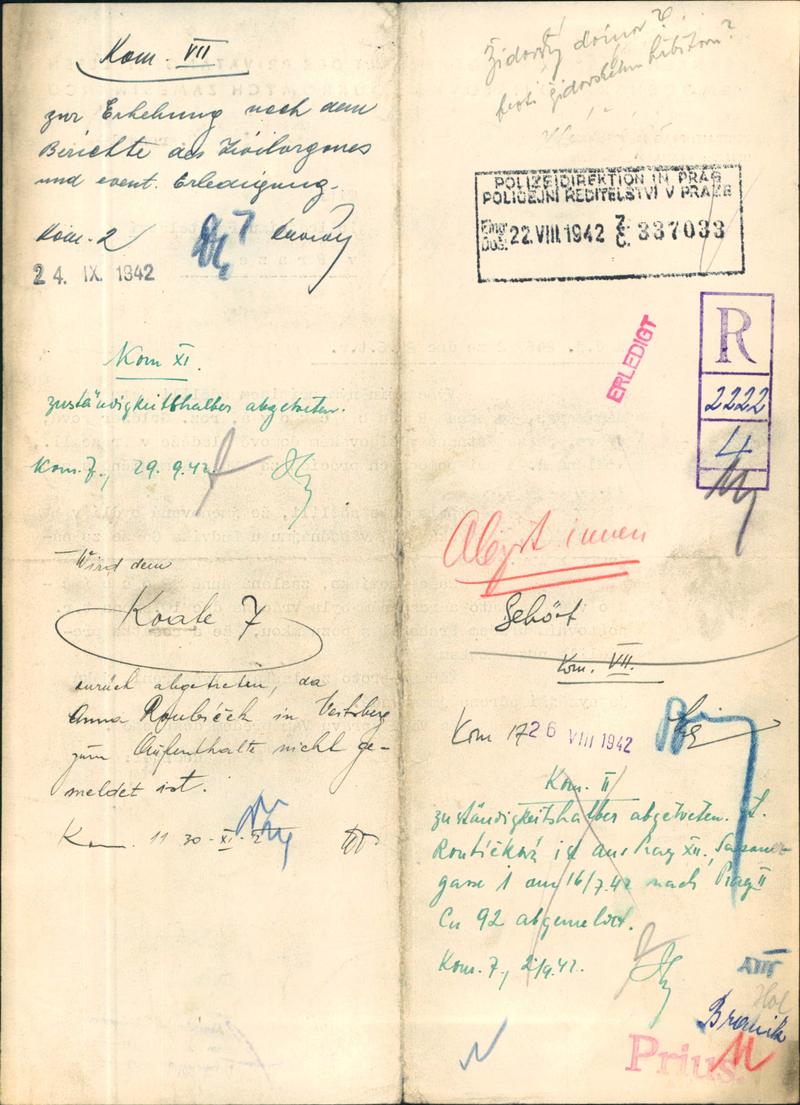 Kom VII
zur Erhebung nach dem
Berichte des Zivilorganes
und event. Erledigung.
Kom. 2
24. IX. 1942
Kom XI.
zuständigkeitshalber abgetreten.
Kom. 7., 29. 9. 42
Wird dem
Koate 7
zurück abgetreten, da
Anna Roubíček in Veitsberg
zum Aufenthalte nicht ge-
meldet ist.
Kom. 11 30-XI-
Židovský domov?
POLIZEIDIREKTION IN PRAG
POLICEJNÍ ŘEDITELSTVÍ V PRAZE
Eing. Došl. 22.VIII.1942 Z. Č. 337033
ERLEDIGT
R
2222
4
Abgst innen
Gehört
Kom. VII.
Kom 17 26 VIII 1942
Kom. II
zuständigkeitshalber abgetreten.
Roubíčková ist aus Prag XII.,
gasse 1 am 16/7.42 nach Prag II
Cn 92 abgemeldet.
Kom. 7., 2/9.42.
Branik
Prius.